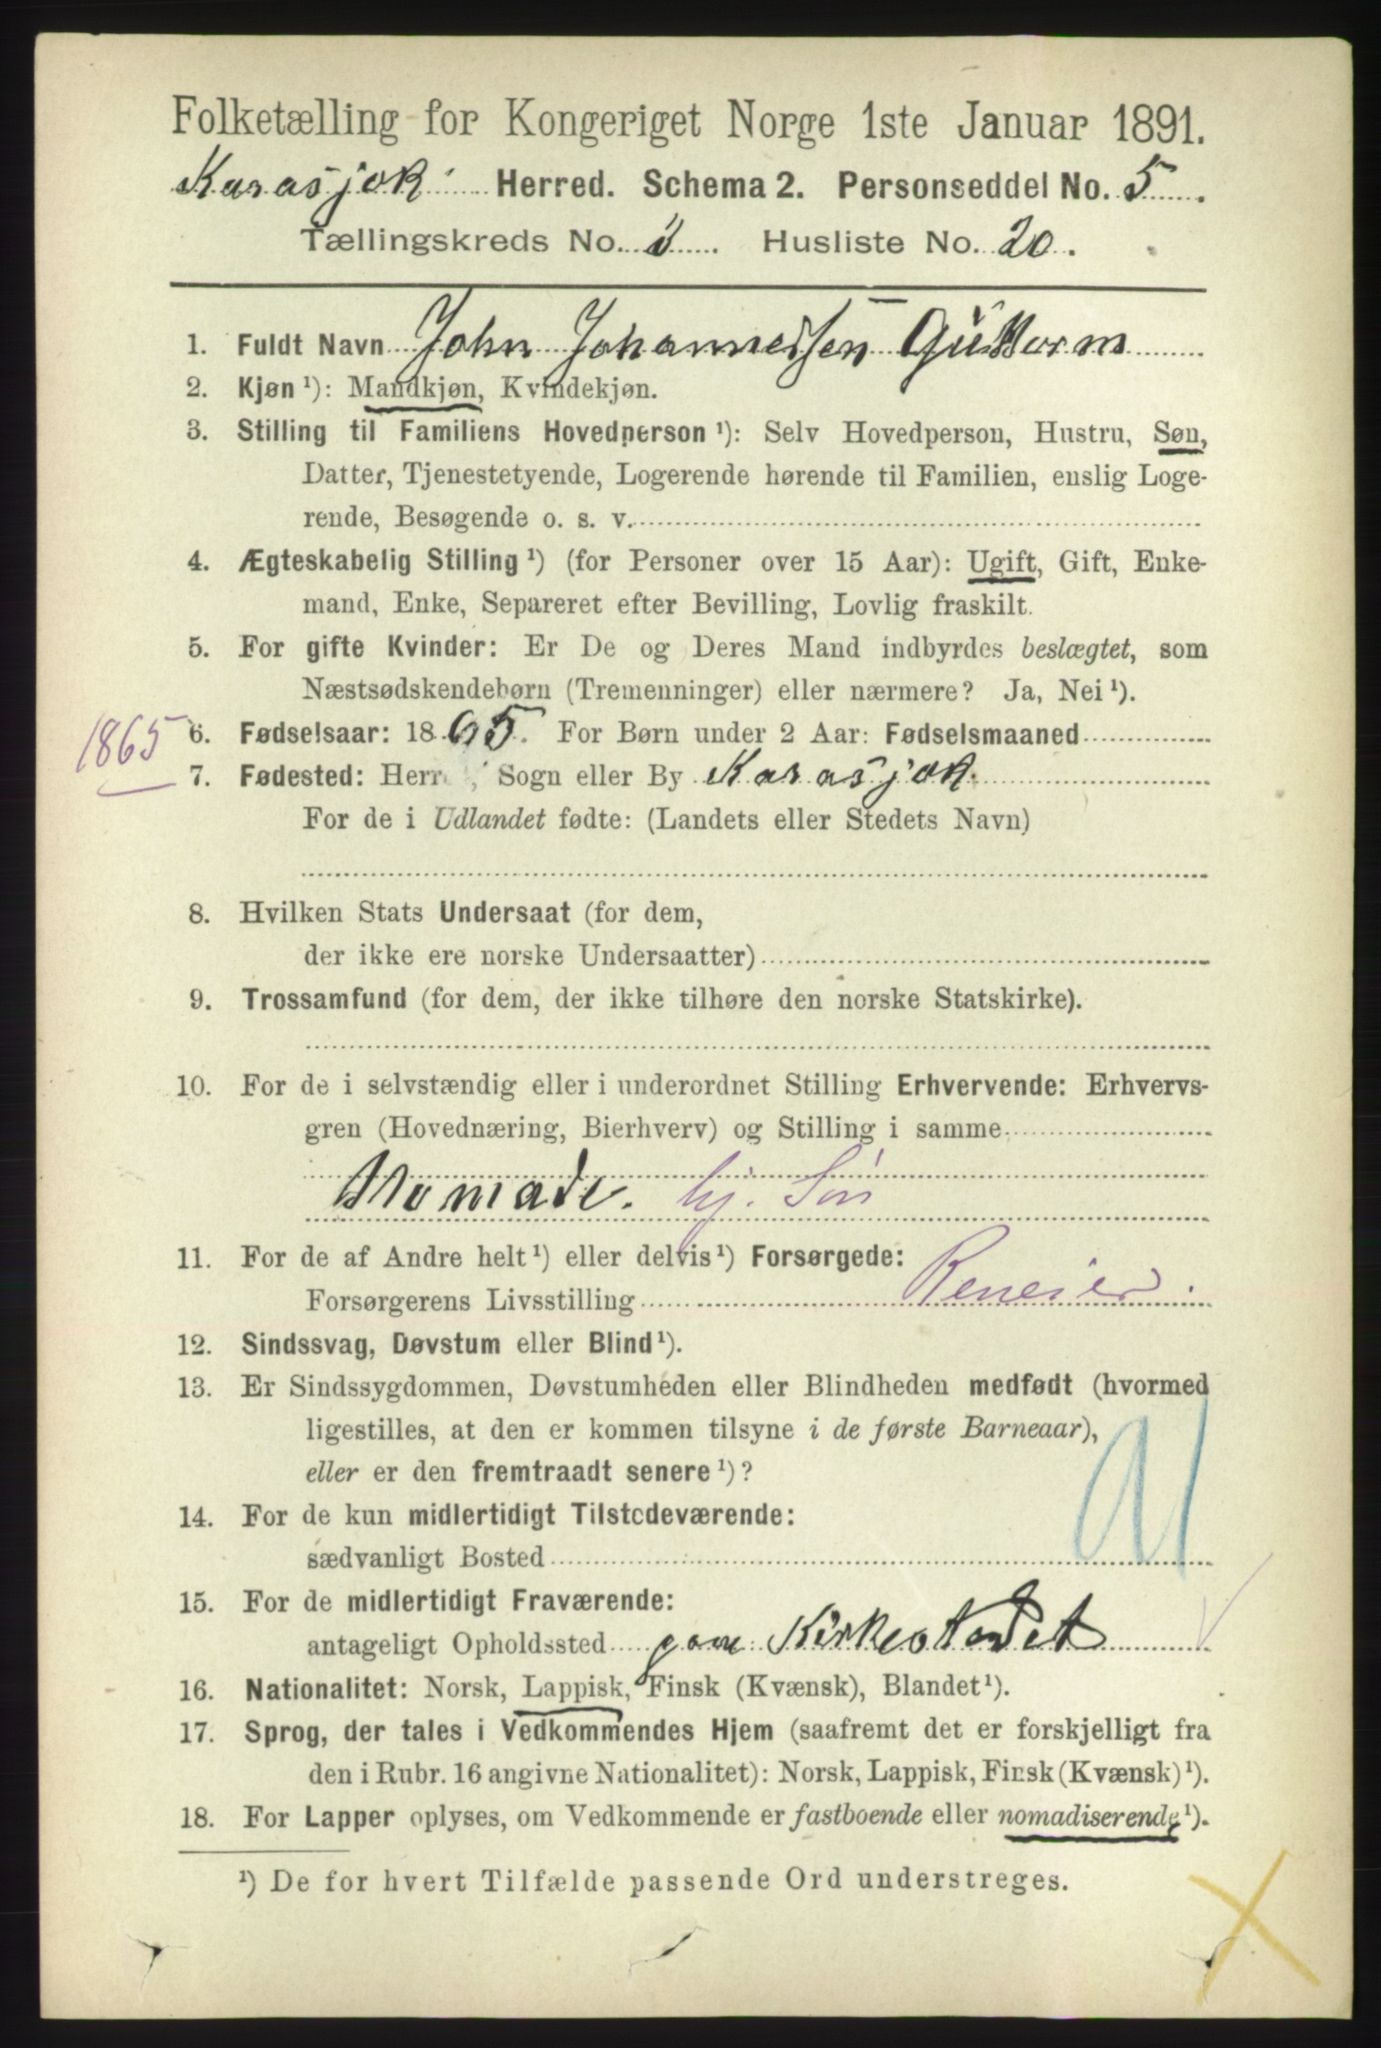 Folketælling for Kongeriget Norge 1ste Januar 1891.
Karasjok Herred. Schema 2. Personseddel No. 5.
Tællingskreds No. Husliste No. 20.
1. Fuldt Navn John Johannessen Guttorm
2. Kjøn ¹): Mandkjøn, Kvindekjøn.
3. Stilling til Familiens Hovedperson ¹): Selv Hovedperson, Hustru, Søn,
Datter, Tjenestetyende, Logerende hørende til Familien, enslig Loge-
rende, Besøgende o. s. v.
4. Ægteskabelig Stilling ¹) (for Personer over 15 Aar): Ugift, Gift, Enke-
mand, Enke, Separeret efter Bevilling, Lovlig fraskilt.
5. For gifte Kvinder: Er De og Deres Mand indbyrdes beslægtet, som
Næstsødskendebørn (Tremenninger) eller nærmere? Ja, Nei ¹).
1865 6. Fødselsaar: 1865. For Børn under 2 Aar: Fødselsmaaned
7. Fødested: Herr Sogn eller By Karasjok.
For de i Udlandet fødte: (Landets eller Stedets Navn)
8. Hvilken Stats Undersaat (for dem,
der ikke ere norske Undersaatter)
9. Trossamfund (for dem, der ikke tilhøre den norske Statskirke).
10. For de i selvstændig eller i underordnet Stilling Erhvervende: Erhvervs-
gren (Hovednæring, Bierhverv) og Stilling i samme
Nomade. hj. Søn
11. For de af Andre helt ¹) eller delvis ¹) Forsørgede:
Forsørgerens Livsstilling Reneier.
12. Sindssvag, Døvstum eller Blind ¹).
13. Er Sindssygdommen, Døvstumheden eller Blindheden medfødt (hvormed
ligestilles, at den er kommen tilsyne i de første Barneaar),
eller er den fremtraadt senere ¹)?
14. For de kun midlertidigt Tilstedeværende:
sædvanligt Bosted
15. For de midlertidigt Fraværende:
antageligt Opholdssted paa Kirkestedet
16. Nationalitet: Norsk, Lappisk, Finsk (Kvænsk), Blandet ¹).
17. Sprog, der tales i Vedkommendes Hjem (saafremt det er forskjelligt fra
den i Rubr. 16 angivne Nationalitet): Norsk, Lappisk, Finsk (Kvænsk) ¹).
18. For Lapper oplyses, om Vedkommende er fastboende eller nomadiserende ¹).
¹) De for hvert Tilfælde passende Ord understreges.